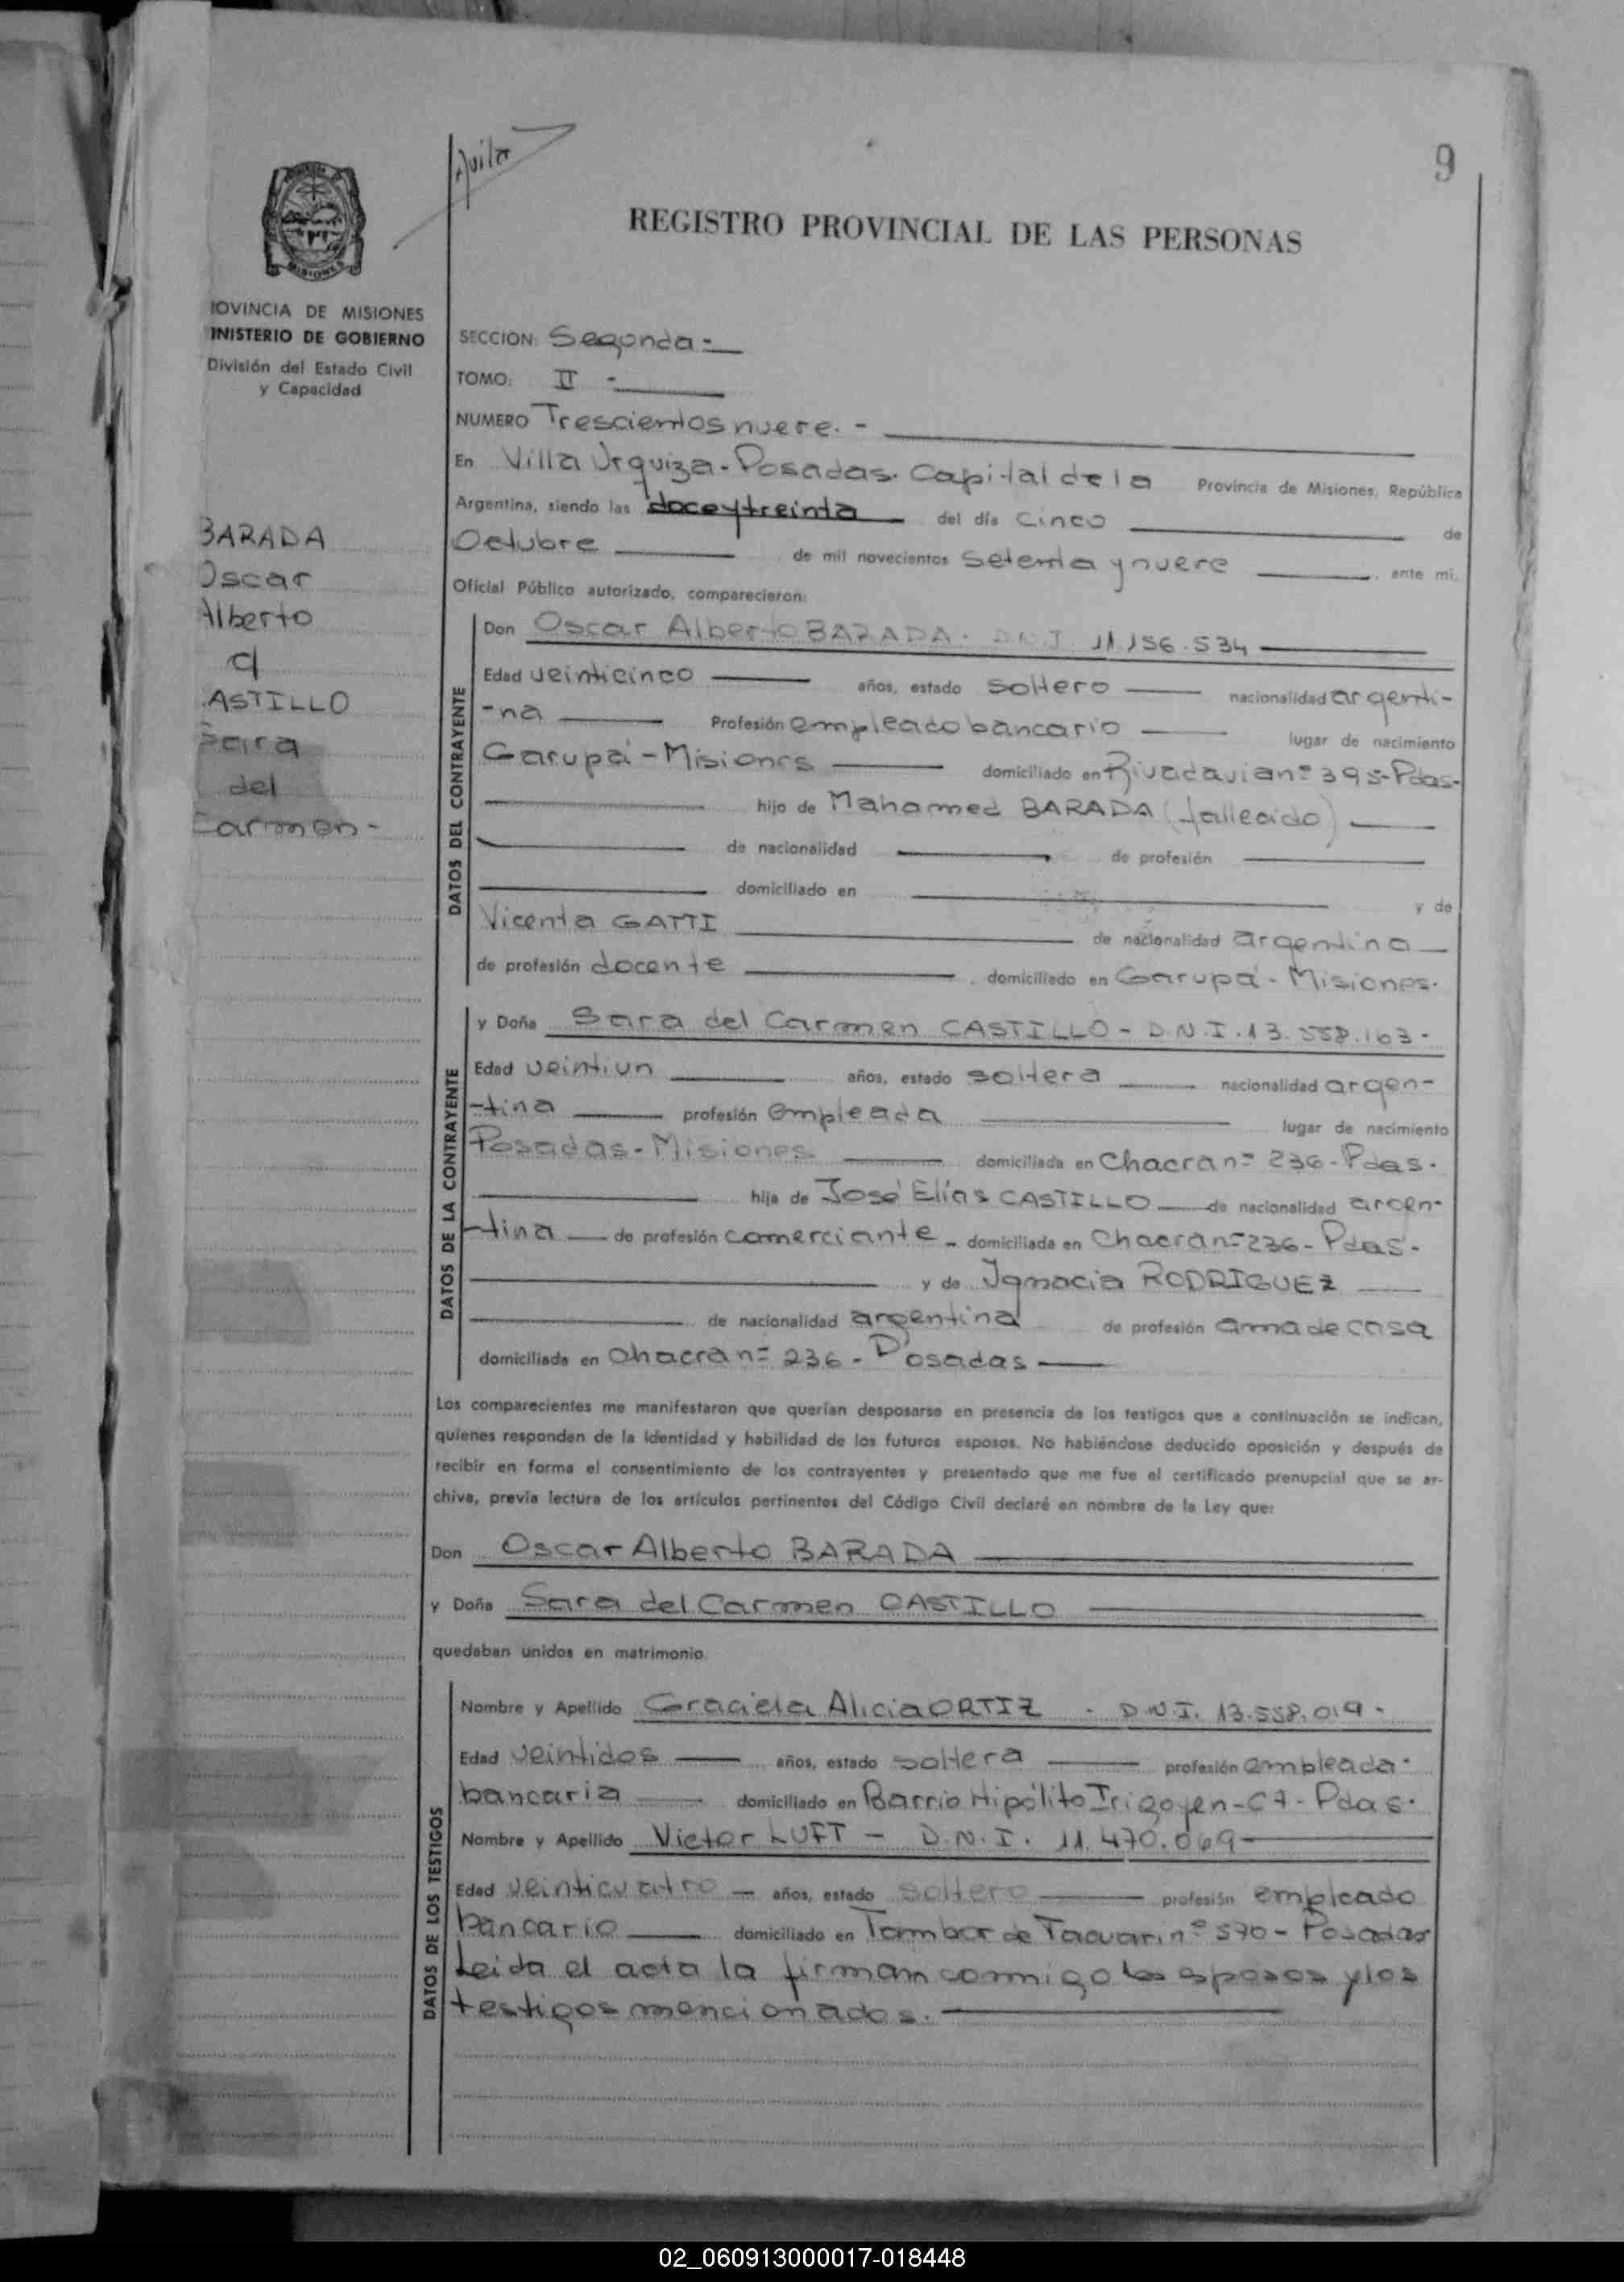 9
REGISTRO PROVINCIAL DE LAS PERSONAS
MISIONES
IOVINCIA DE MISIONES
INISTERIO DE GOBIERNO
División del Estado Civil
y Capacidad
BARADA
Oscar
Alberto
q
ASTILLO
Sara
del
Carmen-
SECCION: Segunda.-
TOMO: II -
NUMERO Trescientos nueve.-
En Villa Urquiza-Posadas. Capital de la Provincia de Misiones, República
Argentina, siendo las doce y treinta del día cinco de
Octubre de mil novecientos setenta y nueve, ante mi,
Oficial Público autorizado, comparecieron:
DATOS DEL CONTRAYENTE
Don Oscar Alberto BARADA. D.N.I. 11.156.534
Edad veinticinco años, estado soltero nacionalidad argenti-
-na Profesión empleado bancario lugar de nacimiento
Garupá-Misiones domiciliado en Rivadavia n= 395-Pdas-
hijo de Mahamed BARADA (fallecido)
de nacionalidad de profesión
domiciliado en y de
Vicenta GATTI de nacionalidad argentina
de profesión docente, domiciliado en Garupá-Misiones.
DATOS DE LA CONTRAYENTE
y Doña Sara del Carmen CASTILLO- D.N.I. 13.558.163-
Edad veintiun años, estado soltera nacionalidad argen-
-tina profesión empleada lugar de nacimiento
Posadas-Misiones domiciliada en Chacra n= 236-Pdas.
hija de José Elías CASTILLO de nacionalidad argen-
-tina de profesión comerciante - domiciliada en Chacra n= 236- Pdas.
y de Ignacia RODRIGUEZ
de nacionalidad argentina de profesión ama de casa
domiciliada en Chacra n= 236- Posadas
Los comparecientes me manifestaron que querían desposarse en presencia de los testigos que a continuación se indican,
quienes responden de la identidad y habilidad de los futuros esposos. No habiéndose deducido oposición y después de
recibir en forma el consentimiento de los contrayentes y presentado que me fue el certificado prenupcial que se ar-
chiva, previa lectura de los artículos pertinentes del Código Civil declaré en nombre de la Ley que:
Don Oscar Alberto BARADA
y Doña Sara del Carmen CASTILLO
quedaban unidos en matrimonio
DATOS DE LOS TESTIGOS
Nombre y Apellido Graciela Alicia ORTIZ - D.N.I. 13.558.019-
Edad veintidos años, estado soltera profesión empleada-
bancaria domiciliado en Barrio Hipólito Irigoyen-C7-Pdas.
Nombre y Apellido Victor LUFT - D.N.I. 11.470.069
Edad veinticuatro años, estado soltero profesión empleado
bancario domiciliado en Tambor de Tacuari n° 570- Posadas
Leida el acta la firman conmigo los esposos y los
testigos mencionados.
02_060913000017-018448